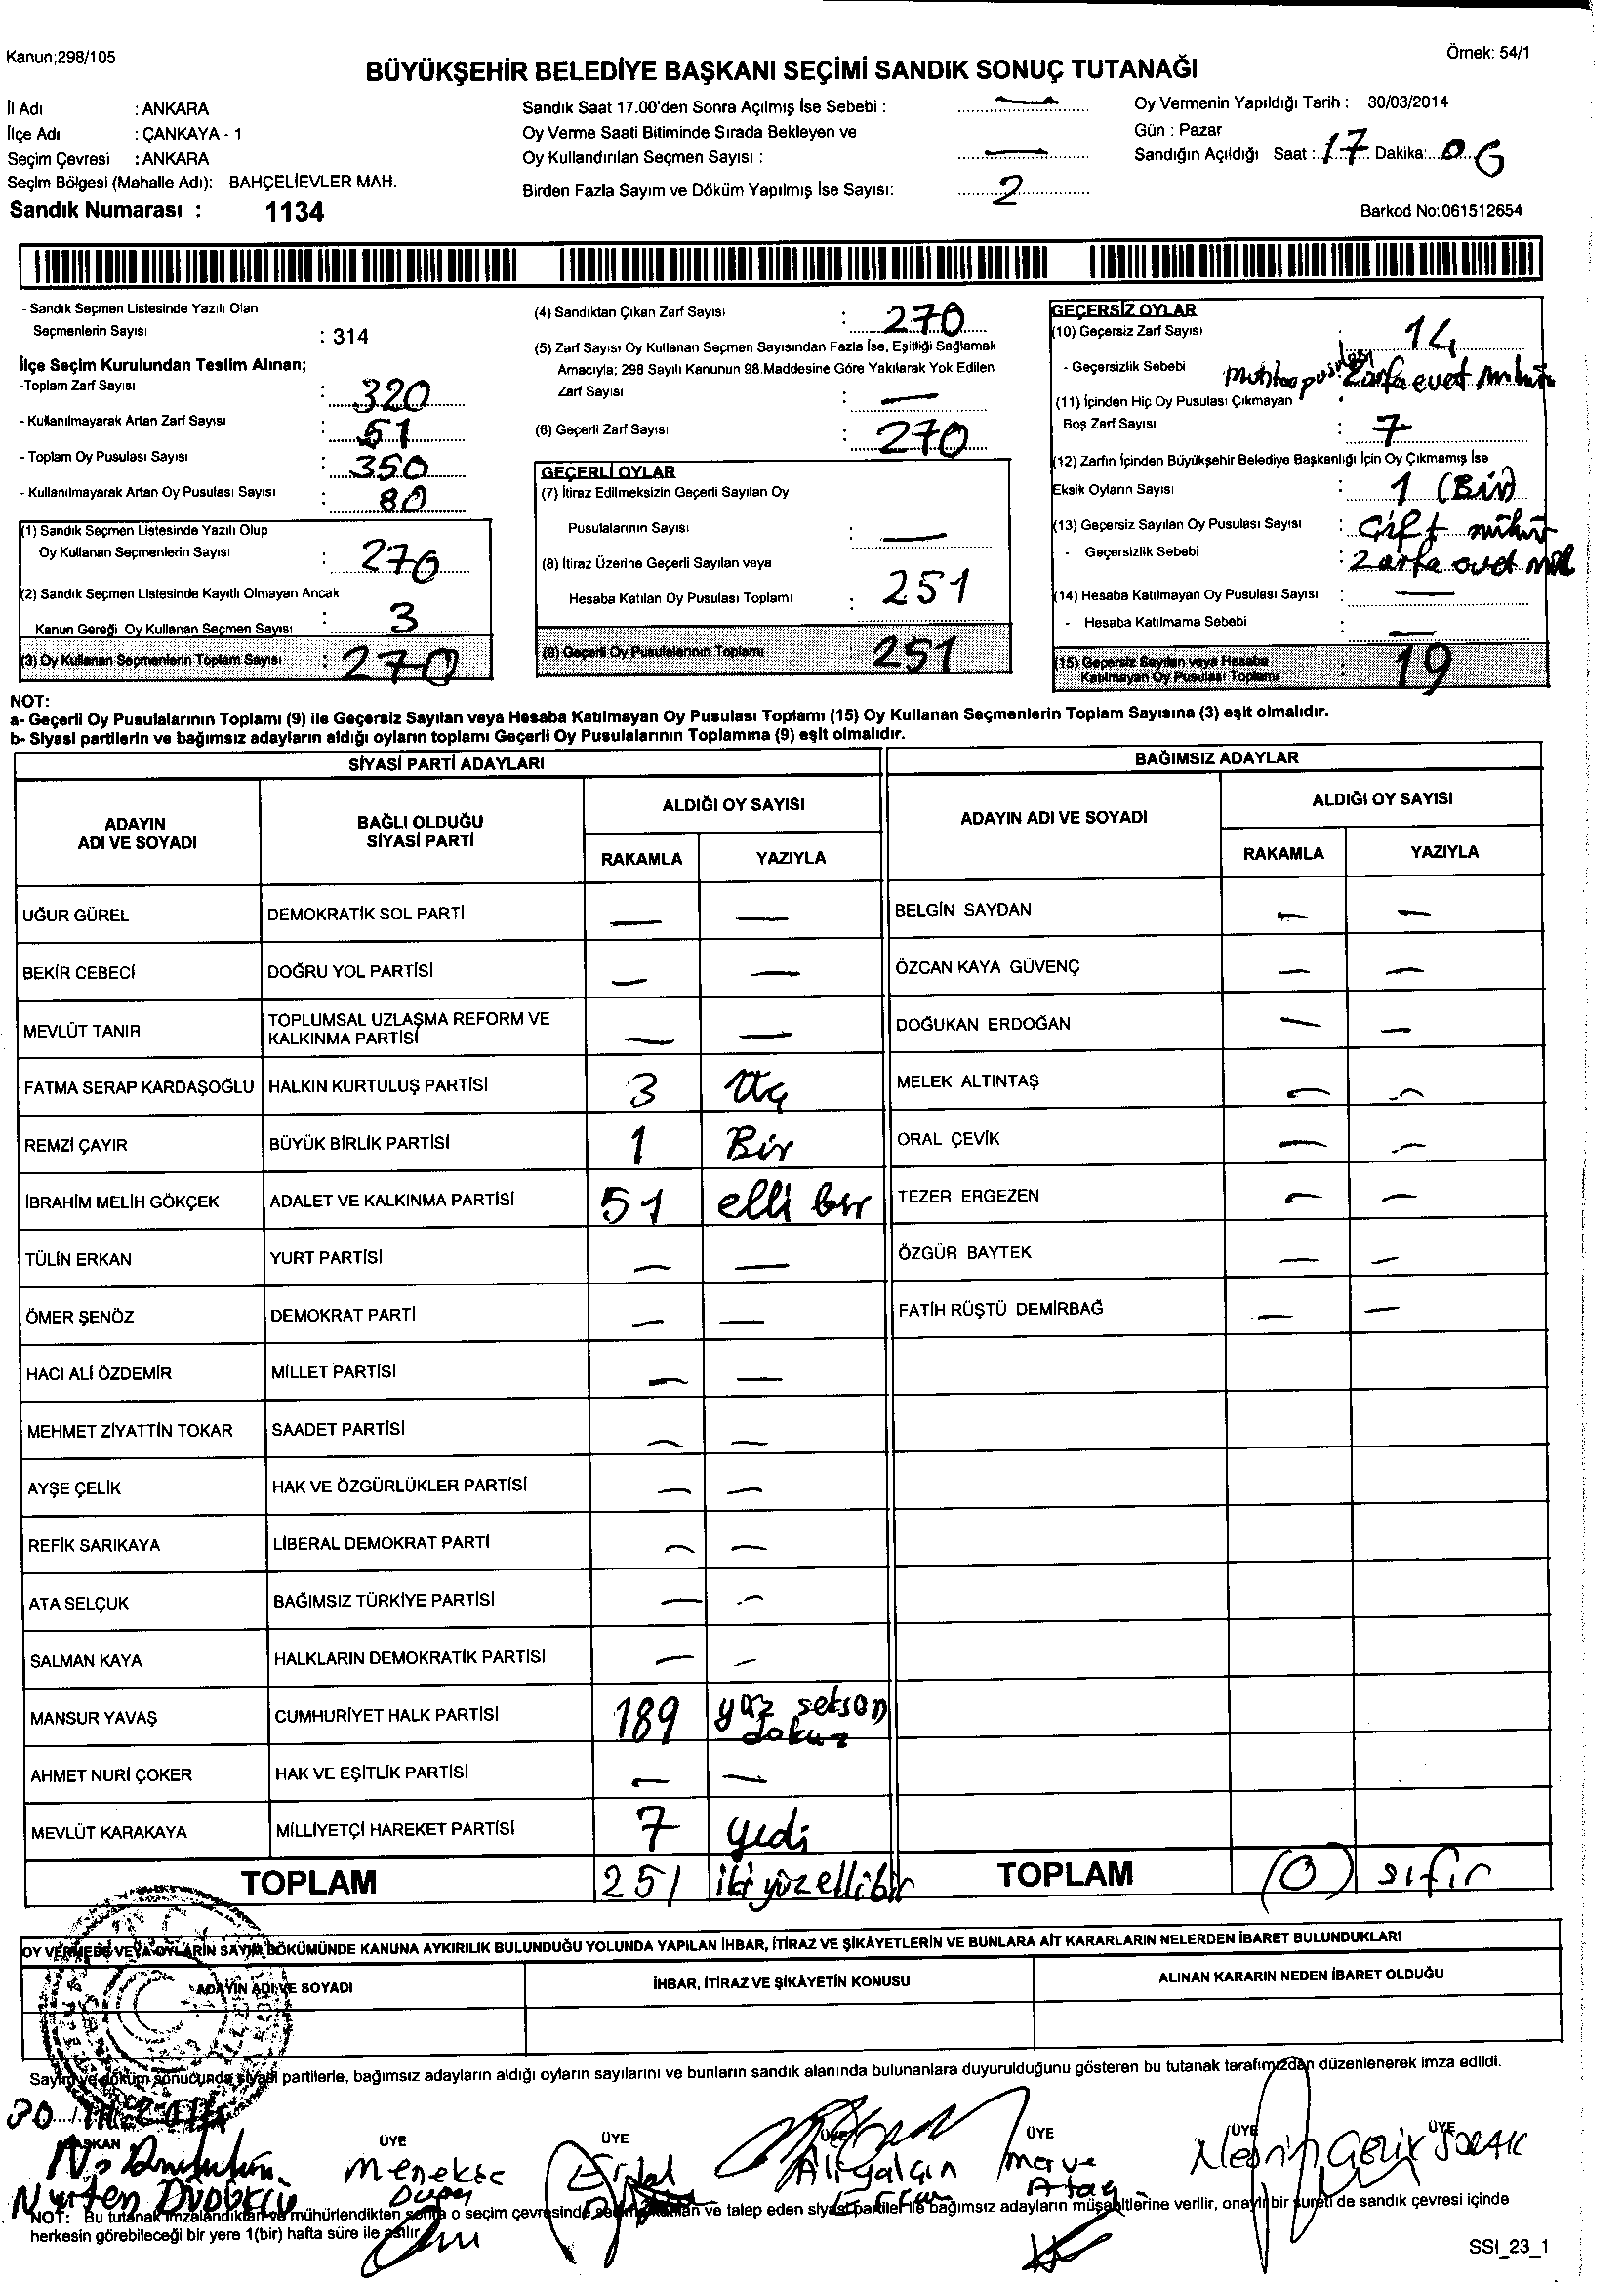 Kanun;298/105
Örnek: 54/1
BÜYÜKŞEHİR BELEDİYE BAŞKANI SEÇİMİ SANDIK SONUÇ TUTANAĞI
İl Adı : ANKARA
İlçe Adı : ÇANKAYA - 1
Seçim Çevresi : ANKARA
Seçim Bölgesi (Mahalle Adı): BAHÇELİEVLER MAH.
Sandık Numarası : 1134
Sandık Saat 17.00'den Sonra Açılmış İse Sebebi : —
Oy Verme Saati Bitiminde Sırada Bekleyen ve
Oy Kullandırılan Seçmen Sayısı : —
Birden Fazla Sayım ve Döküm Yapılmış İse Sayısı: 2
Oy Vermenin Yapıldığı Tarih : 30/03/2014
Gün : Pazar
Sandığın Açıldığı Saat : 17 Dakika: 06
Barkod No:061512654
- Sandık Seçmen Listesinde Yazılı Olan
Seçmenlerin Sayısı : 314
İlçe Seçim Kurulundan Teslim Alınan;
-Toplam Zarf Sayısı : 320
- Kullanılmayarak Artan Zarf Sayısı : 51
- Toplam Oy Pusulası Sayısı : 350
- Kullanılmayarak Artan Oy Pusulası Sayısı : 80
(1) Sandık Seçmen Listesinde Yazılı Olup
Oy Kullanan Seçmenlerin Sayısı : 270
(2) Sandık Seçmen Listesinde Kayıtlı Olmayan Ancak
Kanun Gereği Oy Kullanan Seçmen Sayısı : 3
(3) Oy Kullanan Seçmenlerin Toplam Sayısı : 270
(4) Sandıktan Çıkan Zarf Sayısı : 270
(5) Zarf Sayısı Oy Kullanan Seçmen Sayısından Fazla İse, Eşitliği Sağlamak
Amacıyla; 298 Sayılı Kanunun 98.Maddesine Göre Yakılarak Yok Edilen
Zarf Sayısı : —
(6) Geçerli Zarf Sayısı : 270
GEÇERLİ OYLAR
(7) İtiraz Edilmeksizin Geçerli Sayılan Oy
Pusulalarının Sayısı : —
(8) İtiraz Üzerine Geçerli Sayılan veya
Hesaba Katılan Oy Pusulası Toplamı : 251
(9) Geçerli Oy Pusulalarının Toplamı 251
GEÇERSİZ OYLAR
(10) Geçersiz Zarf Sayısı : 14
- Geçersizlik Sebebi : Muhtar pusulası Zarfa evet mührü
(11) İçinden Hiç Oy Pusulası Çıkmayan
Boş Zarf Sayısı : 7
(12) Zarfın İçinden Büyükşehir Belediye Başkanlığı İçin Oy Çıkmamış İse
Eksik Oyların Sayısı : 1 (Bir)
(13) Geçersiz Sayılan Oy Pusulası Sayısı : Çift mühür
- Geçersizlik Sebebi : Zarfa evet
(14) Hesaba Katılmayan Oy Pusulası Sayısı : —
- Hesaba Katılmama Sebebi : —
(15) Geçersiz Sayılan veya Hesaba
Katılmayan Oy Pusulası Toplamı : 19
NOT:
a- Geçerli Oy Pusulalarının Toplamı (9) ile Geçersiz Sayılan veya Hesaba Katılmayan Oy Pusulası Toplamı (15) Oy Kullanan Seçmenlerin Toplam Sayısına (3) eşit olmalıdır.
b- Siyasi partilerin ve bağımsız adayların aldığı oyların toplamı Geçerli Oy Pusulalarının Toplamına (9) eşit olmalıdır.
SİYASİ PARTİ ADAYLARI
ADAYIN ADI VE SOYADI
BAĞLI OLDUĞU SİYASİ PARTİ
ALDIĞI OY SAYISI
RAKAMLA YAZIYLA
UĞUR GÜREL DEMOKRATİK SOL PARTİ — —
BEKİR CEBECİ DOĞRU YOL PARTİSİ — —
MEVLÜT TANIR TOPLUMSAL UZLAŞMA REFORM VE KALKINMA PARTİSİ — —
FATMA SERAP KARDAŞOĞLU HALKIN KURTULUŞ PARTİSİ 3 Üç
REMZİ ÇAYIR BÜYÜK BİRLİK PARTİSİ 1 Bir
İBRAHİM MELİH GÖKÇEK ADALET VE KALKINMA PARTİSİ 51 elli bir
TÜLİN ERKAN YURT PARTİSİ — —
ÖMER ŞENÖZ DEMOKRAT PARTİ — —
HACI ALİ ÖZDEMİR MİLLET PARTİSİ — —
MEHMET ZİYATTİN TOKAR SAADET PARTİSİ — —
AYŞE ÇELİK HAK VE ÖZGÜRLÜKLER PARTİSİ — —
REFİK SARIKAYA LİBERAL DEMOKRAT PARTİ — —
ATA SELÇUK BAĞIMSIZ TÜRKİYE PARTİSİ — —
SALMAN KAYA HALKLARIN DEMOKRATİK PARTİSİ — —
MANSUR YAVAŞ CUMHURİYET HALK PARTİSİ 189 yüz seksen dokuz
AHMET NURİ ÇOKER HAK VE EŞİTLİK PARTİSİ — —
MEVLÜT KARAKAYA MİLLİYETÇİ HAREKET PARTİSİ 7 yedi
TOPLAM 251 iki yüzellibir
BAĞIMSIZ ADAYLAR
ADAYIN ADI VE SOYADI
ALDIĞI OY SAYISI
RAKAMLA YAZIYLA
BELGİN SAYDAN — —
ÖZCAN KAYA GÜVENÇ — —
DOĞUKAN ERDOĞAN — —
MELEK ALTINTAŞ — —
ORAL ÇEVİK — —
TEZER ERGEZEN — —
ÖZGÜR BAYTEK — —
FATİH RÜŞTÜ DEMİRBAĞ — —
TOPLAM (0) sıfır
OY VERMEDE VEYA OYLARIN SAYIM DÖKÜMÜNDE KANUNA AYKIRILIK BULUNDUĞU YOLUNDA YAPILAN İHBAR, İTİRAZ VE ŞİKÂYETLERİN VE BUNLARA AİT KARARLARIN NELERDEN İBARET BULUNDUKLARI
ADAYIN ADI VE SOYADI
İHBAR, İTİRAZ VE ŞİKÂYETİN KONUSU
ALINAN KARARIN NEDEN İBARET OLDUĞU
Sayım ve döküm sonucunda siyasi partilerle, bağımsız adayların aldığı oyların sayılarını ve bunların sandık alanında bulunanlara duyurulduğunu gösteren bu tutanak tarafımızdan düzenlenerek imza edildi.
BAŞKAN ÜYE ÜYE ÜYE ÜYE ÜYE ÜYE
Nurten
Menekşe
Erdal
Ali Yalçın
Merve
Nesrin
NOT: Bu tutanak imzalandıktan ve mühürlendikten sonra o seçim çevresinde ve talep eden siyasi partiler ile bağımsız adayların müşahitlerine verilir, onaylı bir sureti de sandık çevresi içinde
herkesin görebileceği bir yere 1(bir) hafta süre ile asılır.
SSI_23_1